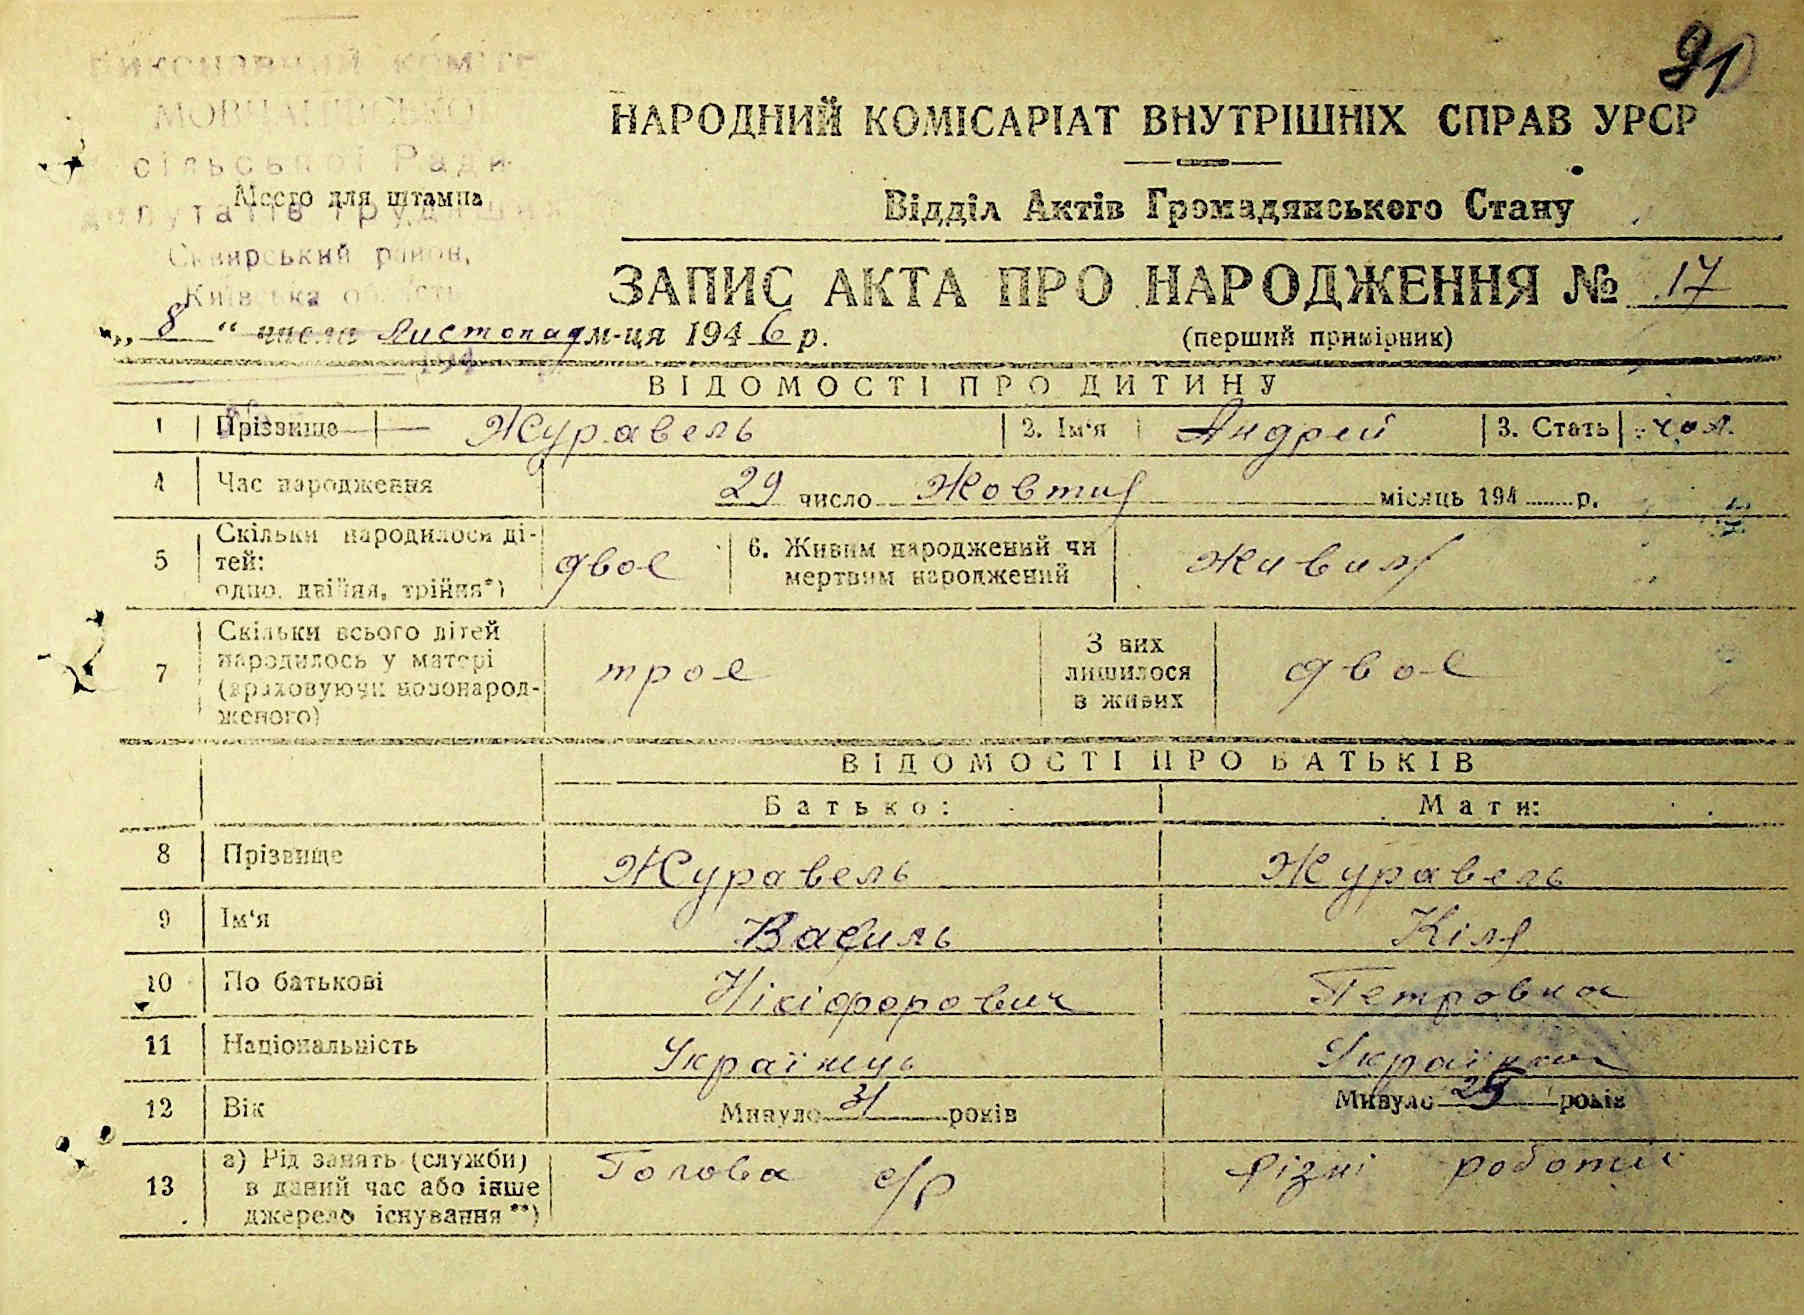 91
Виконавчий коміте
МОВЧАНІВСЬКОЇ
сільської Ради
депутатів трудящих
Сквирський район,
Київська область
Место для штампа
НАРОДНИЙ КОМІСАРІАТ ВНУТРІШНІХ СПРАВ УРСР
Відділ Актів Громадянського Стану
ЗАПИС АКТА ПРО НАРОДЖЕННЯ № 17
(перший примірник)
„ 8 “ числа Листопад м-ця 1946 р.
ВІДОМОСТІ ПРО ДИТИНУ
1 Прізвище Журавель 2. Ім‘я Андрей 3. Стать чол.
4 Час народження 29 число Жовтня місяць 194 р.
5 Скільки народилося ді-
тей:
одно, двійня, трійня*) двоє 6. Живим народжений чи
мертвим народжений живим
7 Скільки всього дітей
народилось у матері
(враховуючи новонарод-
женого) троє З них
лишилося
в живих двоє
ВІДОМОСТІ ПРО БАТЬКІВ
Батько: Мати:
8 Прізвище Журавель Журавель
9 Ім‘я Василь Кіля
10 По батькові Нікіфорович Петровна
11 Національність Українець Українка
12 Вік Минуло 31 років Минуло 25 років
13 а) Рід занять (служби)
в даний час або інше
джерело існування**) Голова с/р різні роботи